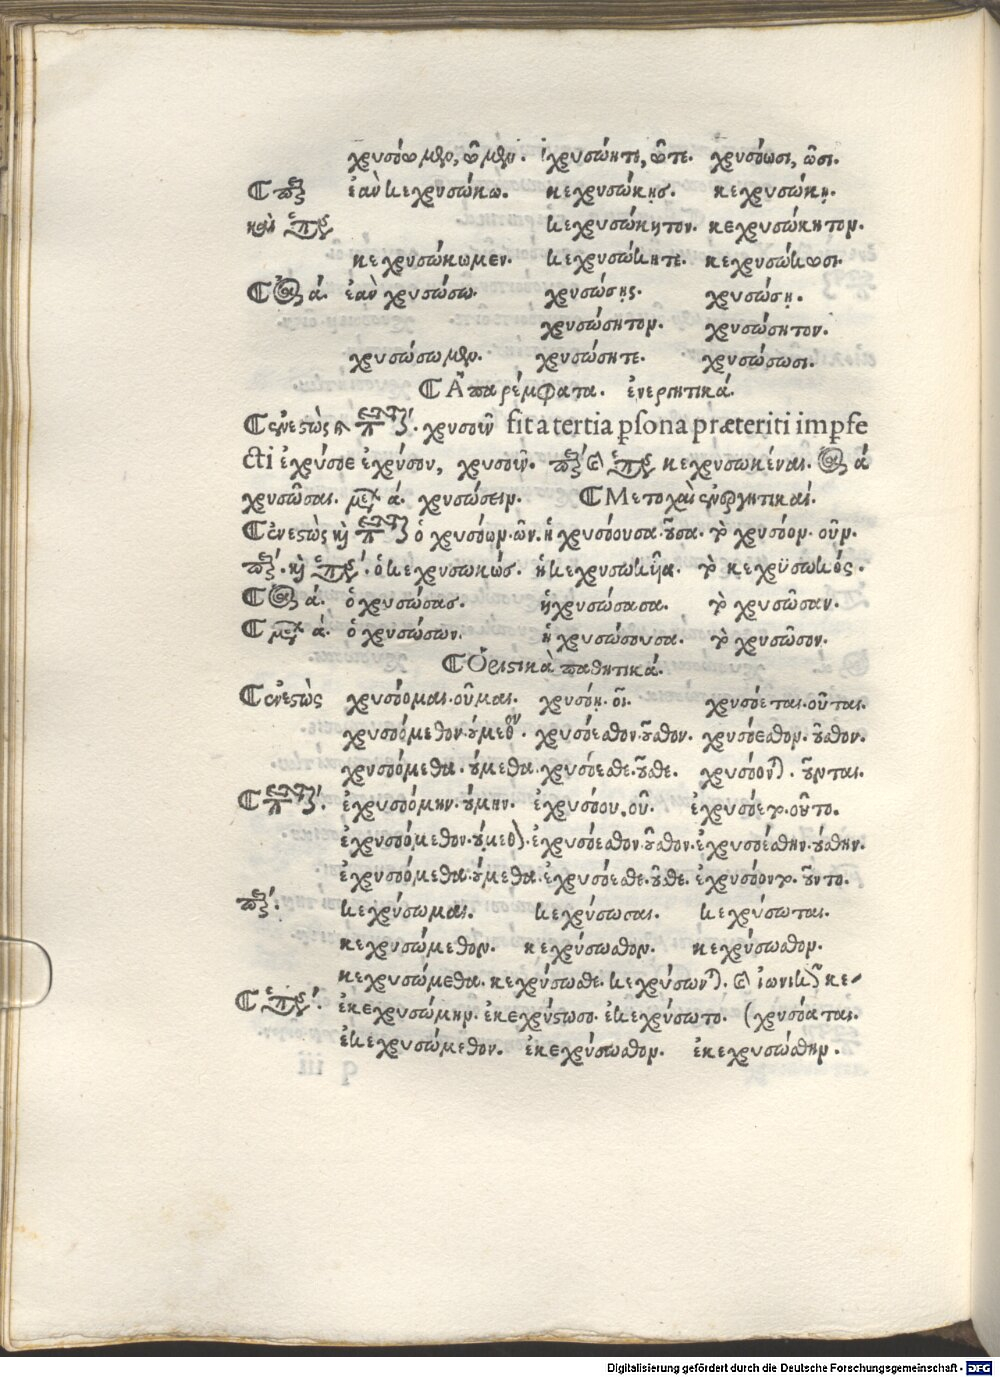 χρυσόωμεν, ῶμεν. χρυσώητε, ῶτε. χρυσόωσι, ῶσι.
ἐὰν κεχρυσώκω. κεχρυσώκῃς. κεχρυσώκῃ.
καὶ κεχρυσώκητον. κεχρυσώκητον.
κεχρυσώκωμεν. κεχρυσώκητε. κεχρυσώκωσι.
ά. ἐὰν χρυσώσω. χρυσώσῃς. χρυσώσῃ.
χρυσώσητον. χρυσώσητον.
χρυσώσωμεν. χρυσώσητε. χρυσώσωσι.
Ἀπαρέμφατα. ἐνεργητικά.
ἐνεστὼς χρυσοῦν fit a tertia psona præteriti impfe
cti ἐχρύσοε ἐχρύσου, χρυσοῦν. κεχρυσωκέναι. ά
χρυσῶσαι. ά. χρυσώσειν. Μετοχαὶ ἐνεργητικαί.
ἐνεστὼς καὶ ὁ χρυσόων. ῶν. ἡ χρυσόουσα. οῦσα. τὸ χρυσόον. οῦν.
καὶ ὁ κεχρυσωκώς. ἡ κεχρυσωκυῖα. τὸ κεχρϋσωκός.
ά. ὁ χρυσώσας. ἡ χρυσώσασα. τὸ χρυσῶσαν.
ά. ὁ χρυσώσων. ἡ χρυσώσουσα. τὸ χρυσῶσον.
Ὁριστικὰ παθητικά.
ἐνεστὼς χρυσόομαι. οῦμαι. χρυσόῃ. οῖ. χρυσόεται. οῦται.
χρυσοόμεθον. ύμεθον. χρυσόεσθον. οῦσθον. χρυσόεσθον. οῦσθον.
χρυσοόμεθα. ύμεθα. χρυσόεσθε. οῦσθε. χρυσόονται. οῦνται.
ἐχρυσοόμην. ύμην. ἐχρυσόου. οῦ. ἐχρυσόετο. οῦτο.
ἐχρυσοόμεθον. ύμεθον. ἐχρυσόεσθον. οῦσθον. ἐχρυσοέσθην. ύσθην.
ἐχρυσοόμεθα. ύμεθα. ἐχρυσόεσθε. οῦσθε. ἐχρυσόοντο. οῦντο.
κεχρύσωμαι. κεχρύσωσαι. κεχρύσωται.
κεχρυσώμεθον. κεχρύσωσθον. κεχρύσωσθον.
κεχρυσώμεθα. κεχρύσωσθε. κεχρύσωνται. ἰωνικῶς κε-
ἐκεχρυσώμην. ἐκεχρύσωσο. ἐκεχρύσωτο. (χρυσόαται.
ἐκεχρυσώμεθον. ἐκεχρύσωσθον. ἐκεχρυσώσθην.
Digitalisierung gefördert durch die Deutsche Forschungsgemeinschaft - DFG